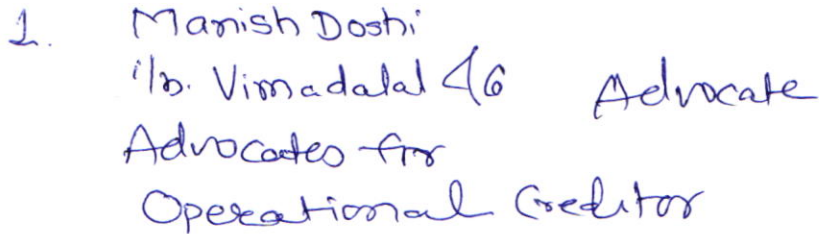 1. Manish Doshi
i/b. Vimadalal & Co Advocate
Advocates for
Operational Creditor